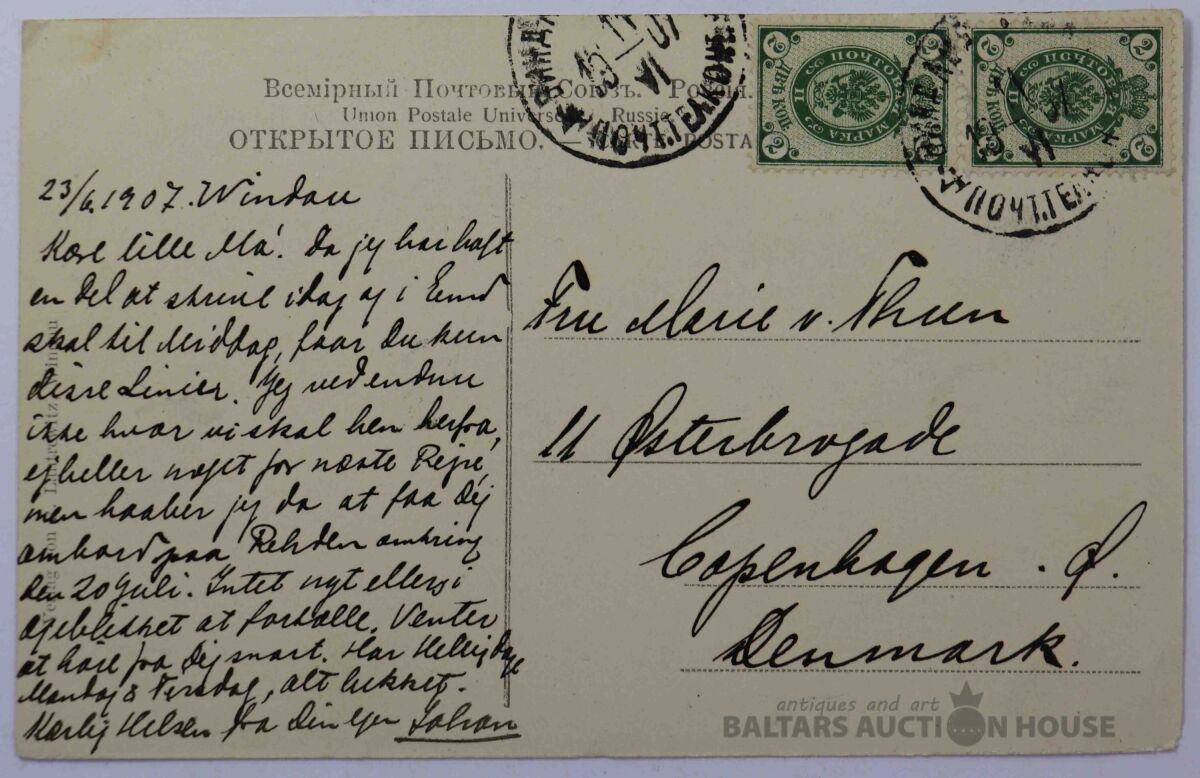 Всемірный Почтовый Союзъ. Россія.
Union Postale Universelle. Russie.
ОТКРЫТОЕ ПИСЬМО. — CARTE POSTA
2 2
ДВѢ КОП.
ПОЧТОВ
МАРКА
2 2
ДВѢ КОП.
ПОЧТОВ
МАРКА
ВИНДА
ПОЧТ.ТЕЛ.КОНТ
ПОЧТ.ТЕЛ
23/6.1907. Windau
Kære lille Ma! Da jeg har haft
en Del at skrive idag og i
skal til Middag, faar Du kun
disse Linier. Jeg ved endnu
ikke hvor vi skal hen herfra,
ej heller noget for næste Rejse,
men haaber jeg da at faa Dig
ombord paa Rehden omkring
den 20 Juli. Intet nyt ellers i
øjeblikket at fortælle. Venter
at høre fra Dig snart. Har Helligdage
Mandag & Tirsdag, alt lukket.
Kærlig Hilsen fra Din egen Johan
Fru Marie v. Thun
11 Østerbrogade
Copenhagen. Ø.
Denmark.
antiques and art
BALTARS AUCTION HOUSE